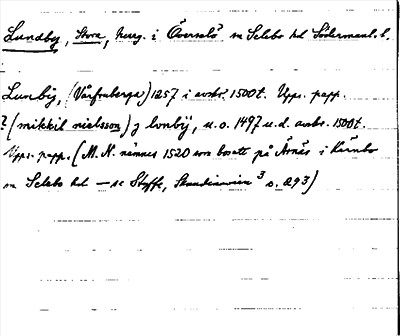 Lundby, Stora, herrg. i Överselö sn Selebo hd Södermanl. l.
Lunby, (Vårfruberga) 1257 i avskr. 1500t. Upps. papp.
? (mikkil nielsson) j lonbÿ, u.o. 1497 u.d. avskr. 1500t.
Upps. papp. (M. N. nämnes 1520 som bosatt på Årnäs i Kärnbo
sn Selebo hd — se Styffe, Skandinavien 3 s. 293)